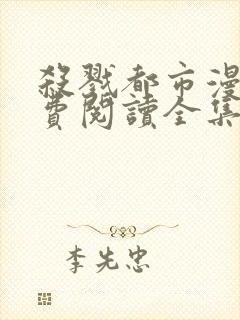 殺戮都市漫
費閱讀全集
李先忠